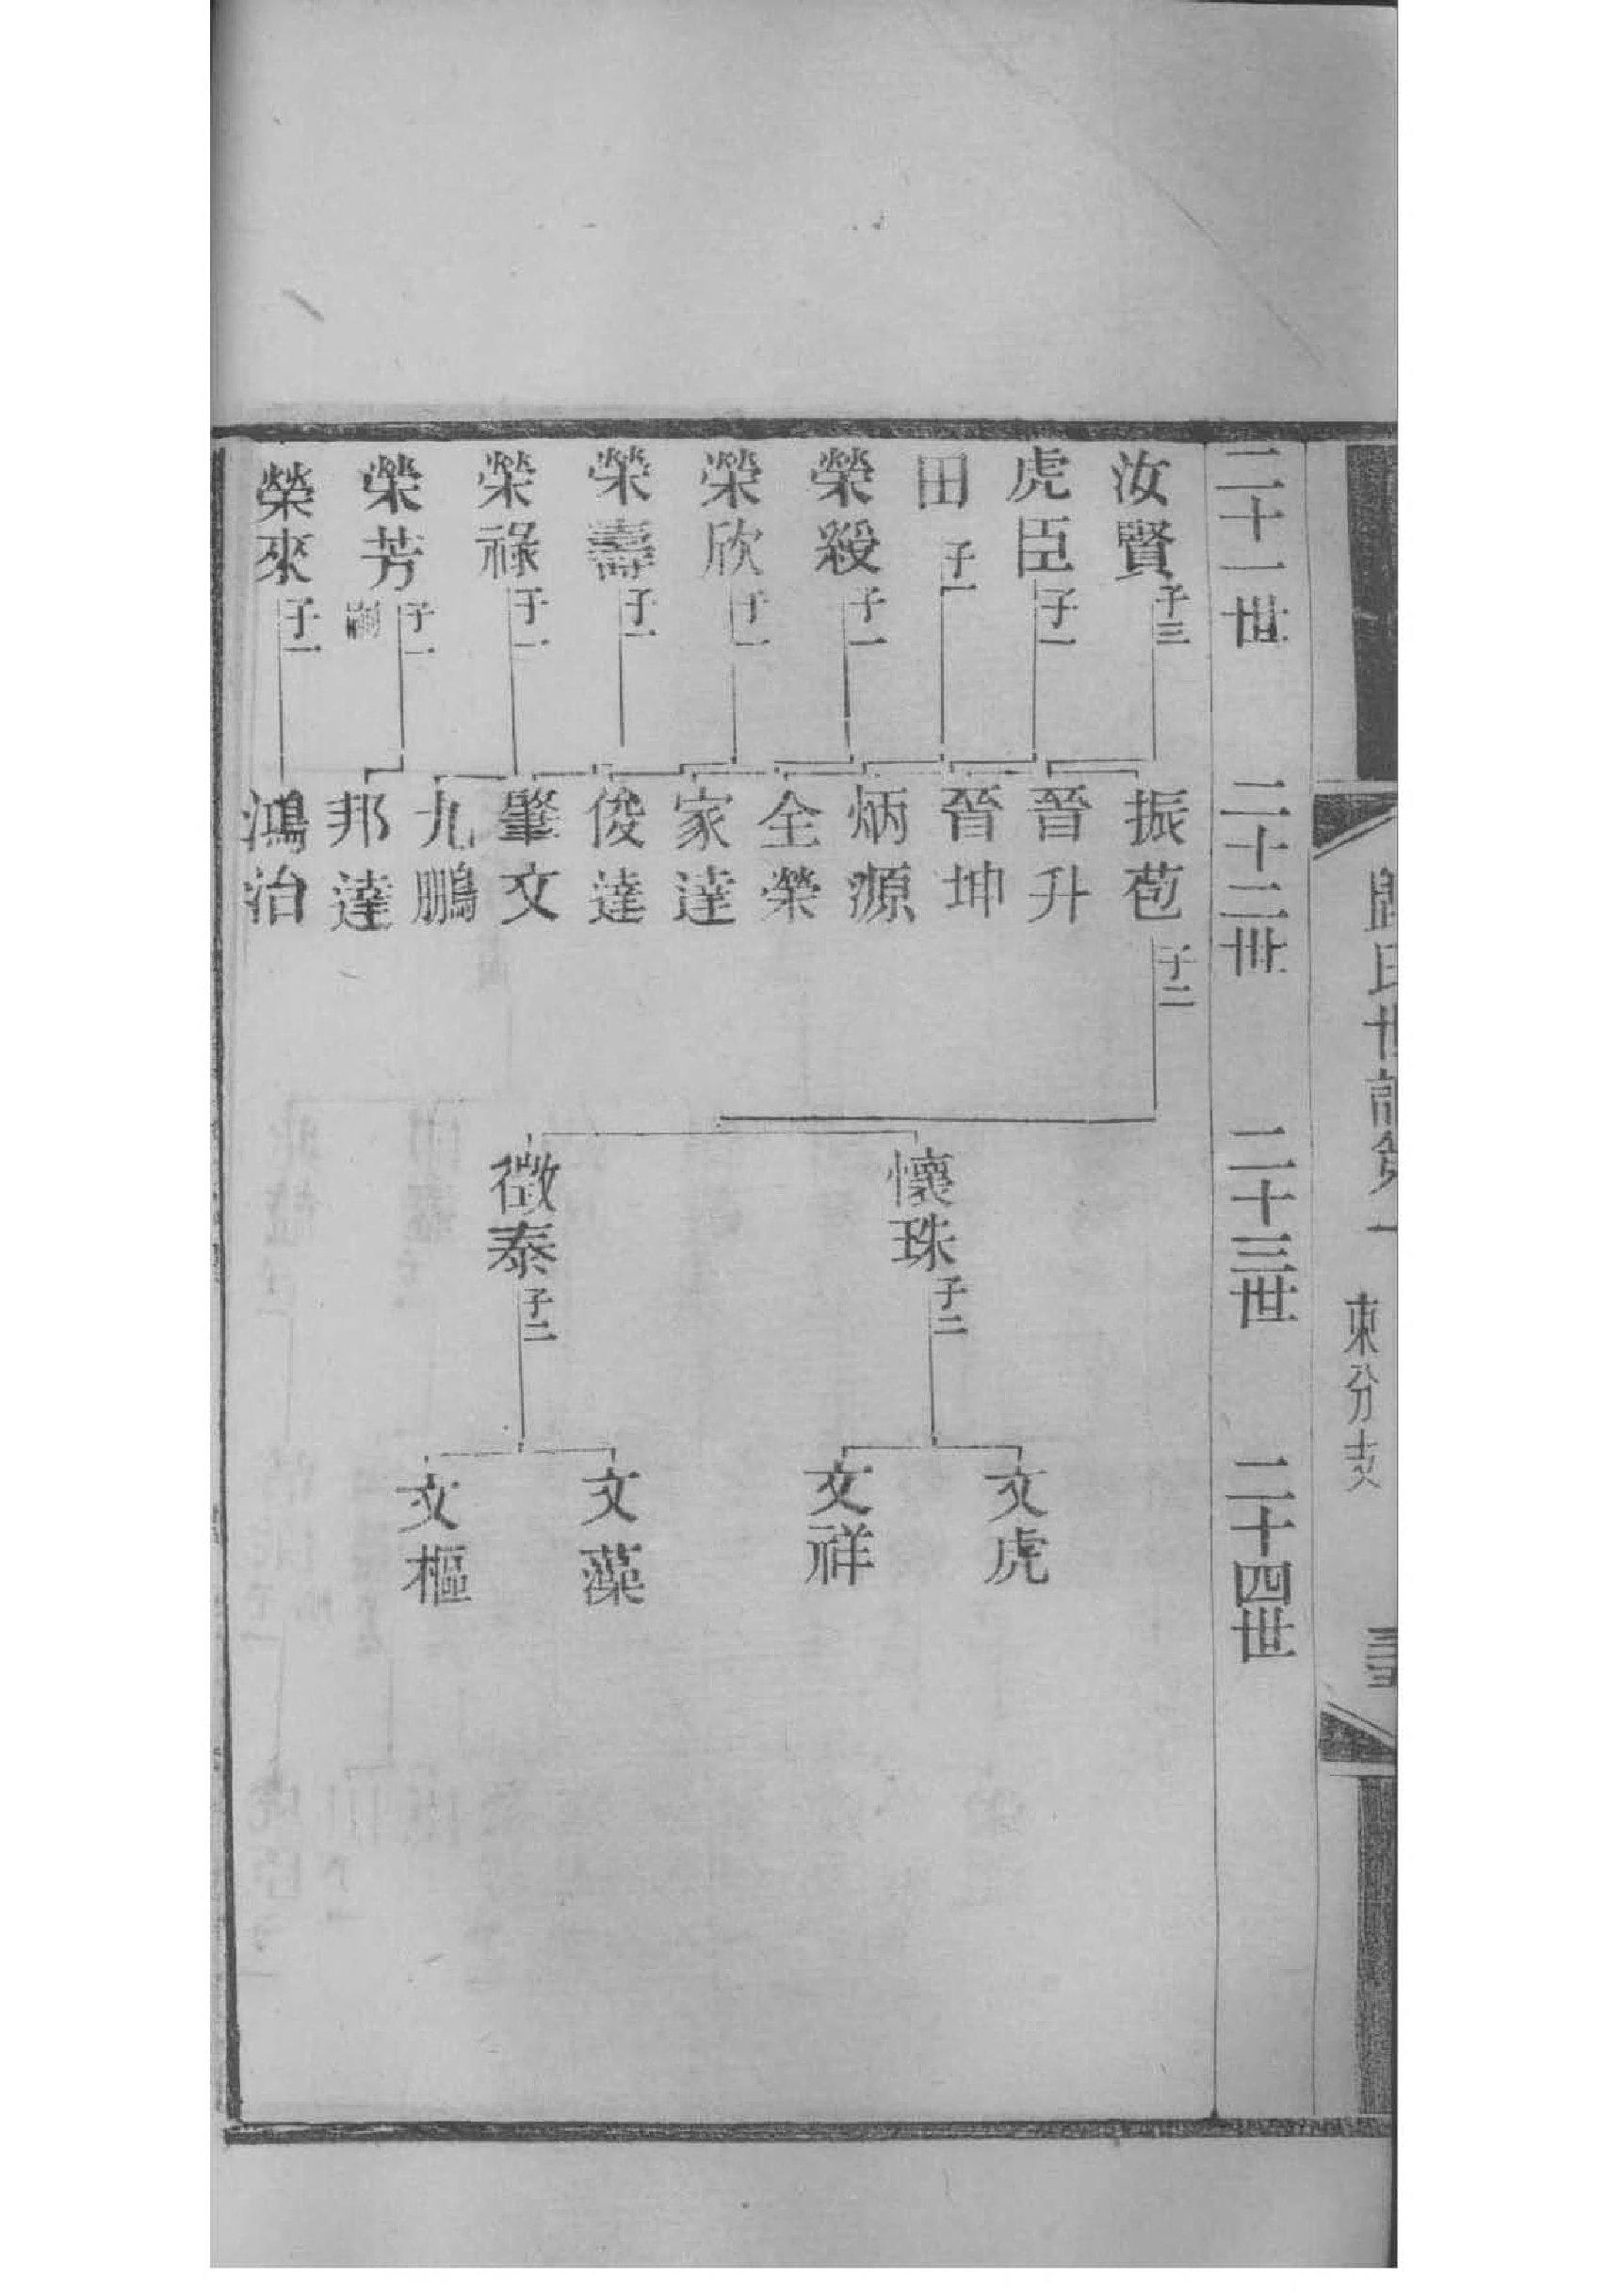 歸氏世譜卷一
東分支
二十一世
二十二世
二十三世
二十四世
汝賢 子三
虎臣 子一
田 子一
榮綬 子一
榮欣 子一
榮壽 子一
榮祿 子一
榮芳 子一
榮來 子一
振苞 子二
晉升
晉坤
炳源
全榮
家達
俊達
肇文
九鵬
邦達
鴻治
懷珠 子二
徵泰 子二
文虎
文祥
文藻
文樞